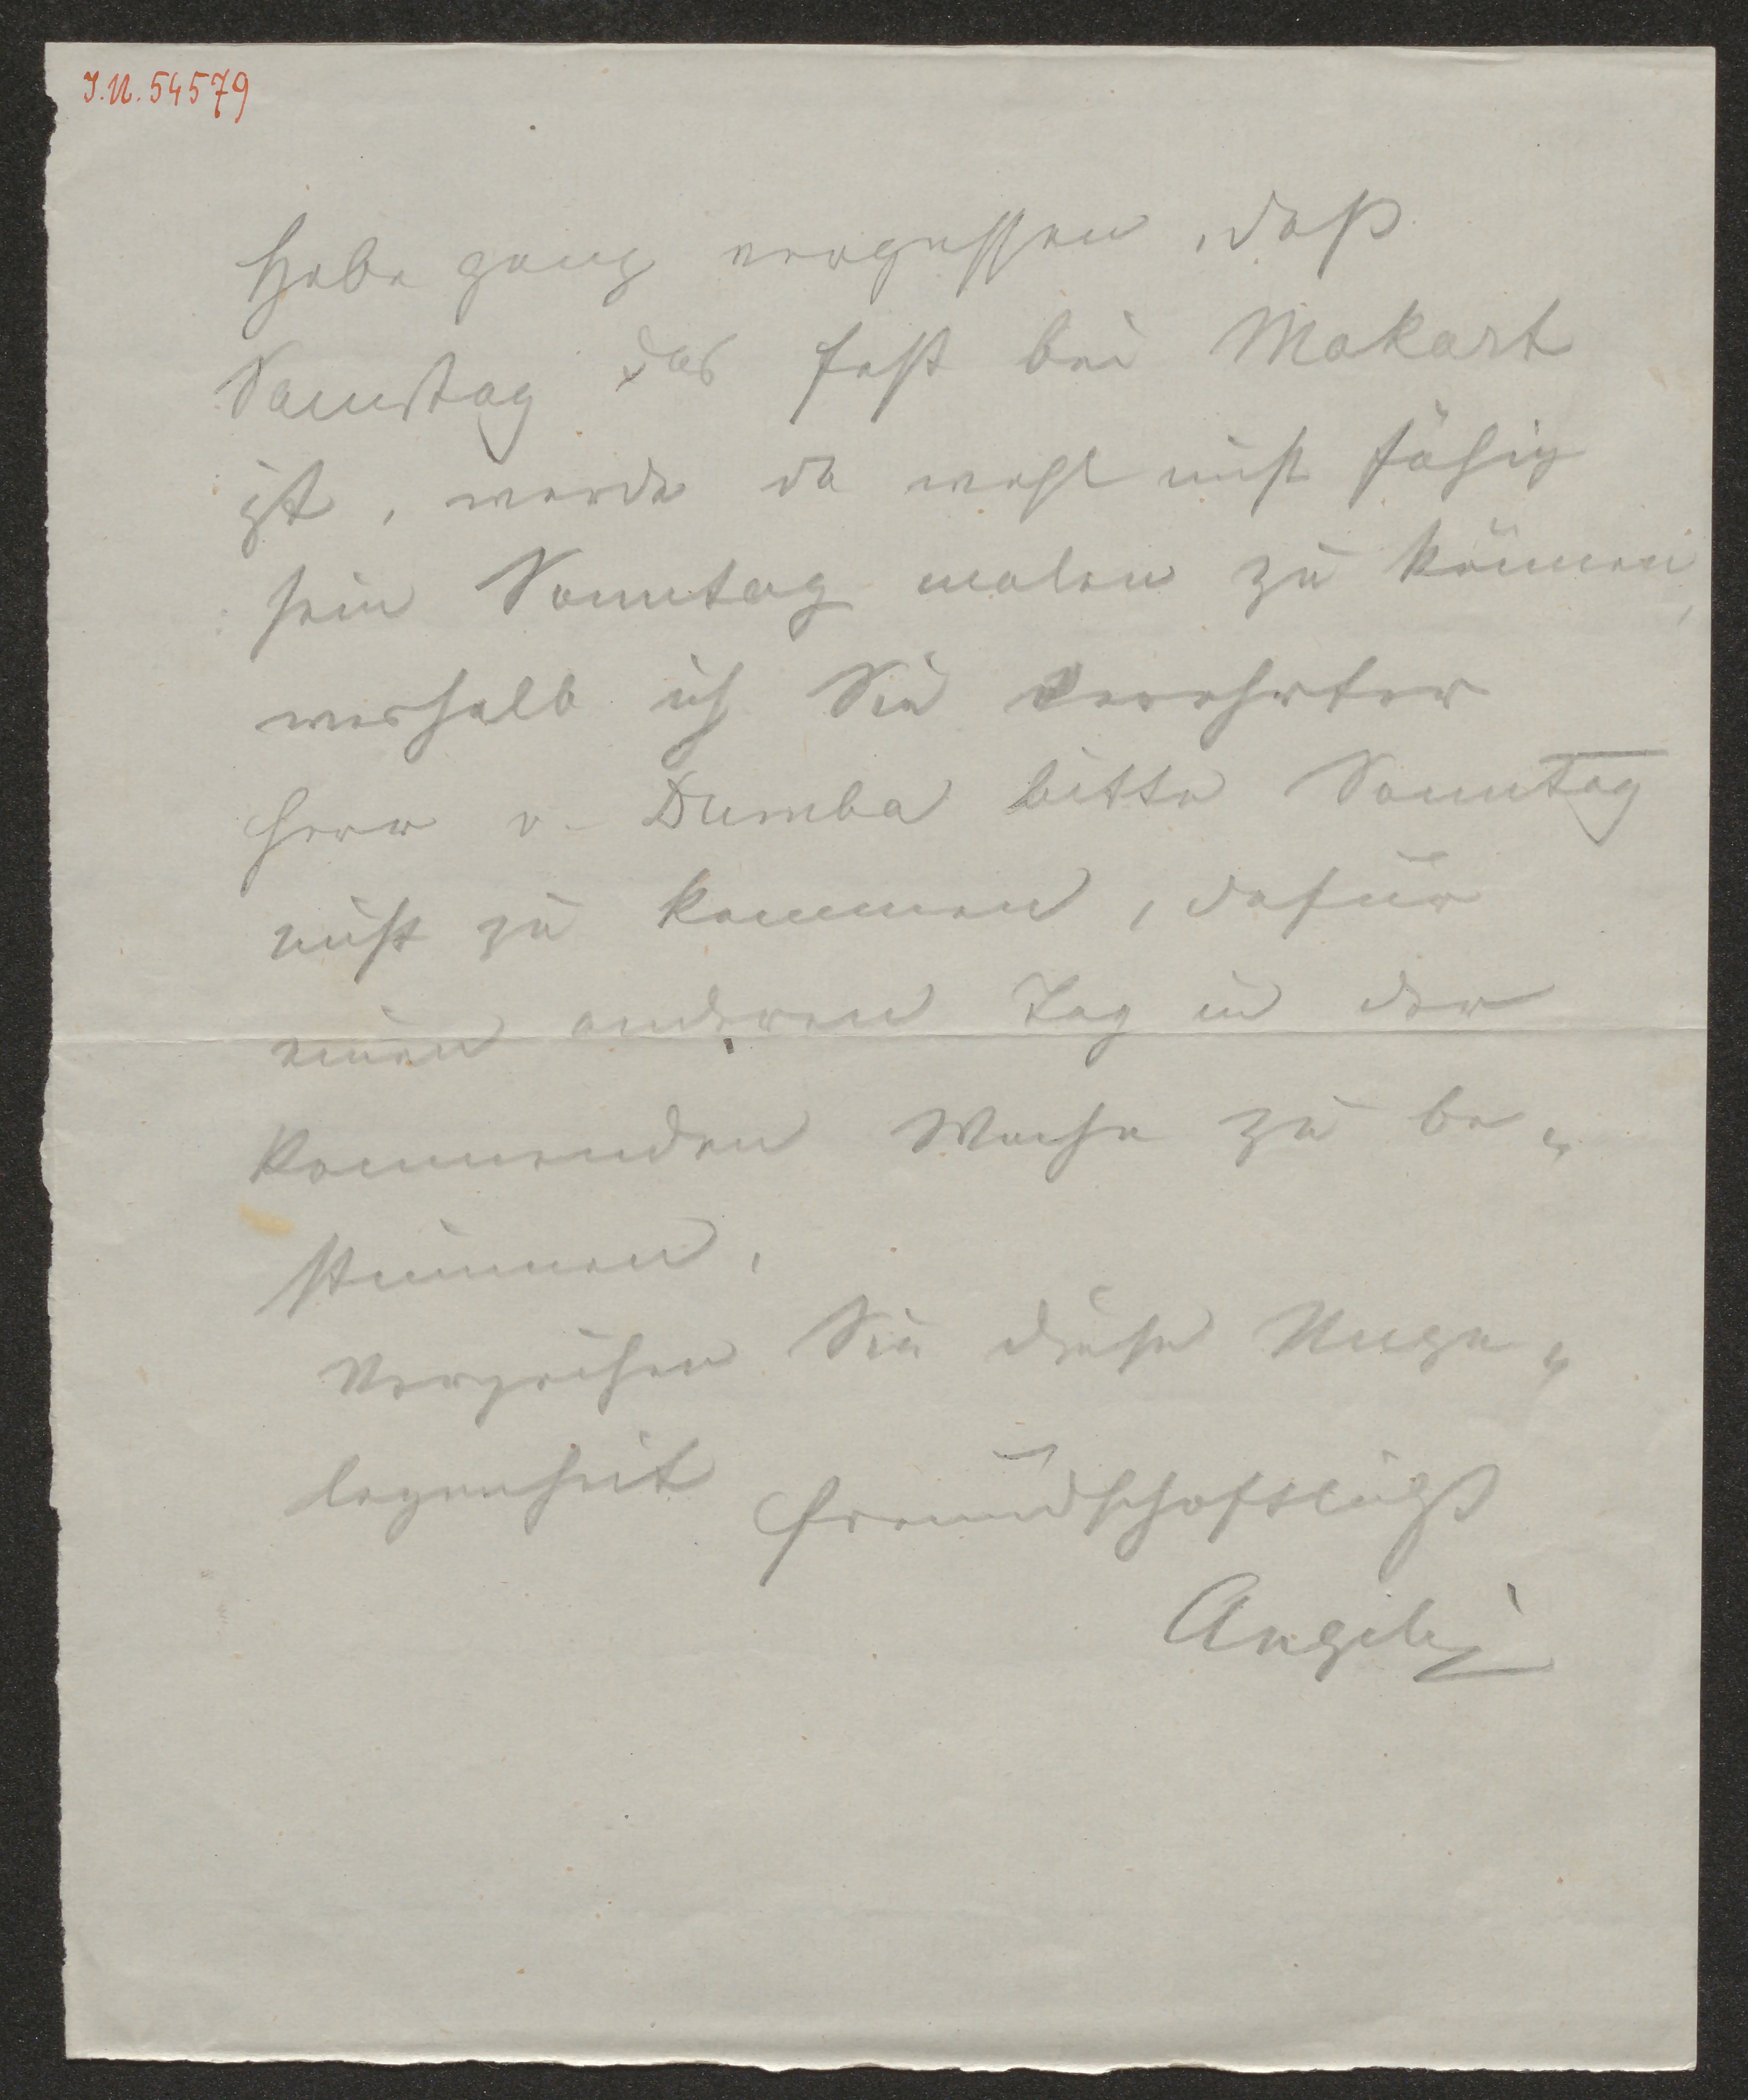 J.N. 54579
Habe ganz vergessen, daß
Samstag das Fest bei Makart
ist, werde da wohl nicht fähig
sein Sonntag malen zu können,
weshalb ich Sie verehrter
Herr v. Dumba bitte Sonntag
nicht zu kommen, dafür
einen anderen Tag in der
kommenden Woche zu be„
stimmen.
Verzeihen Sie diese Unge„
legenheit
freundschaftlichst
Angeli